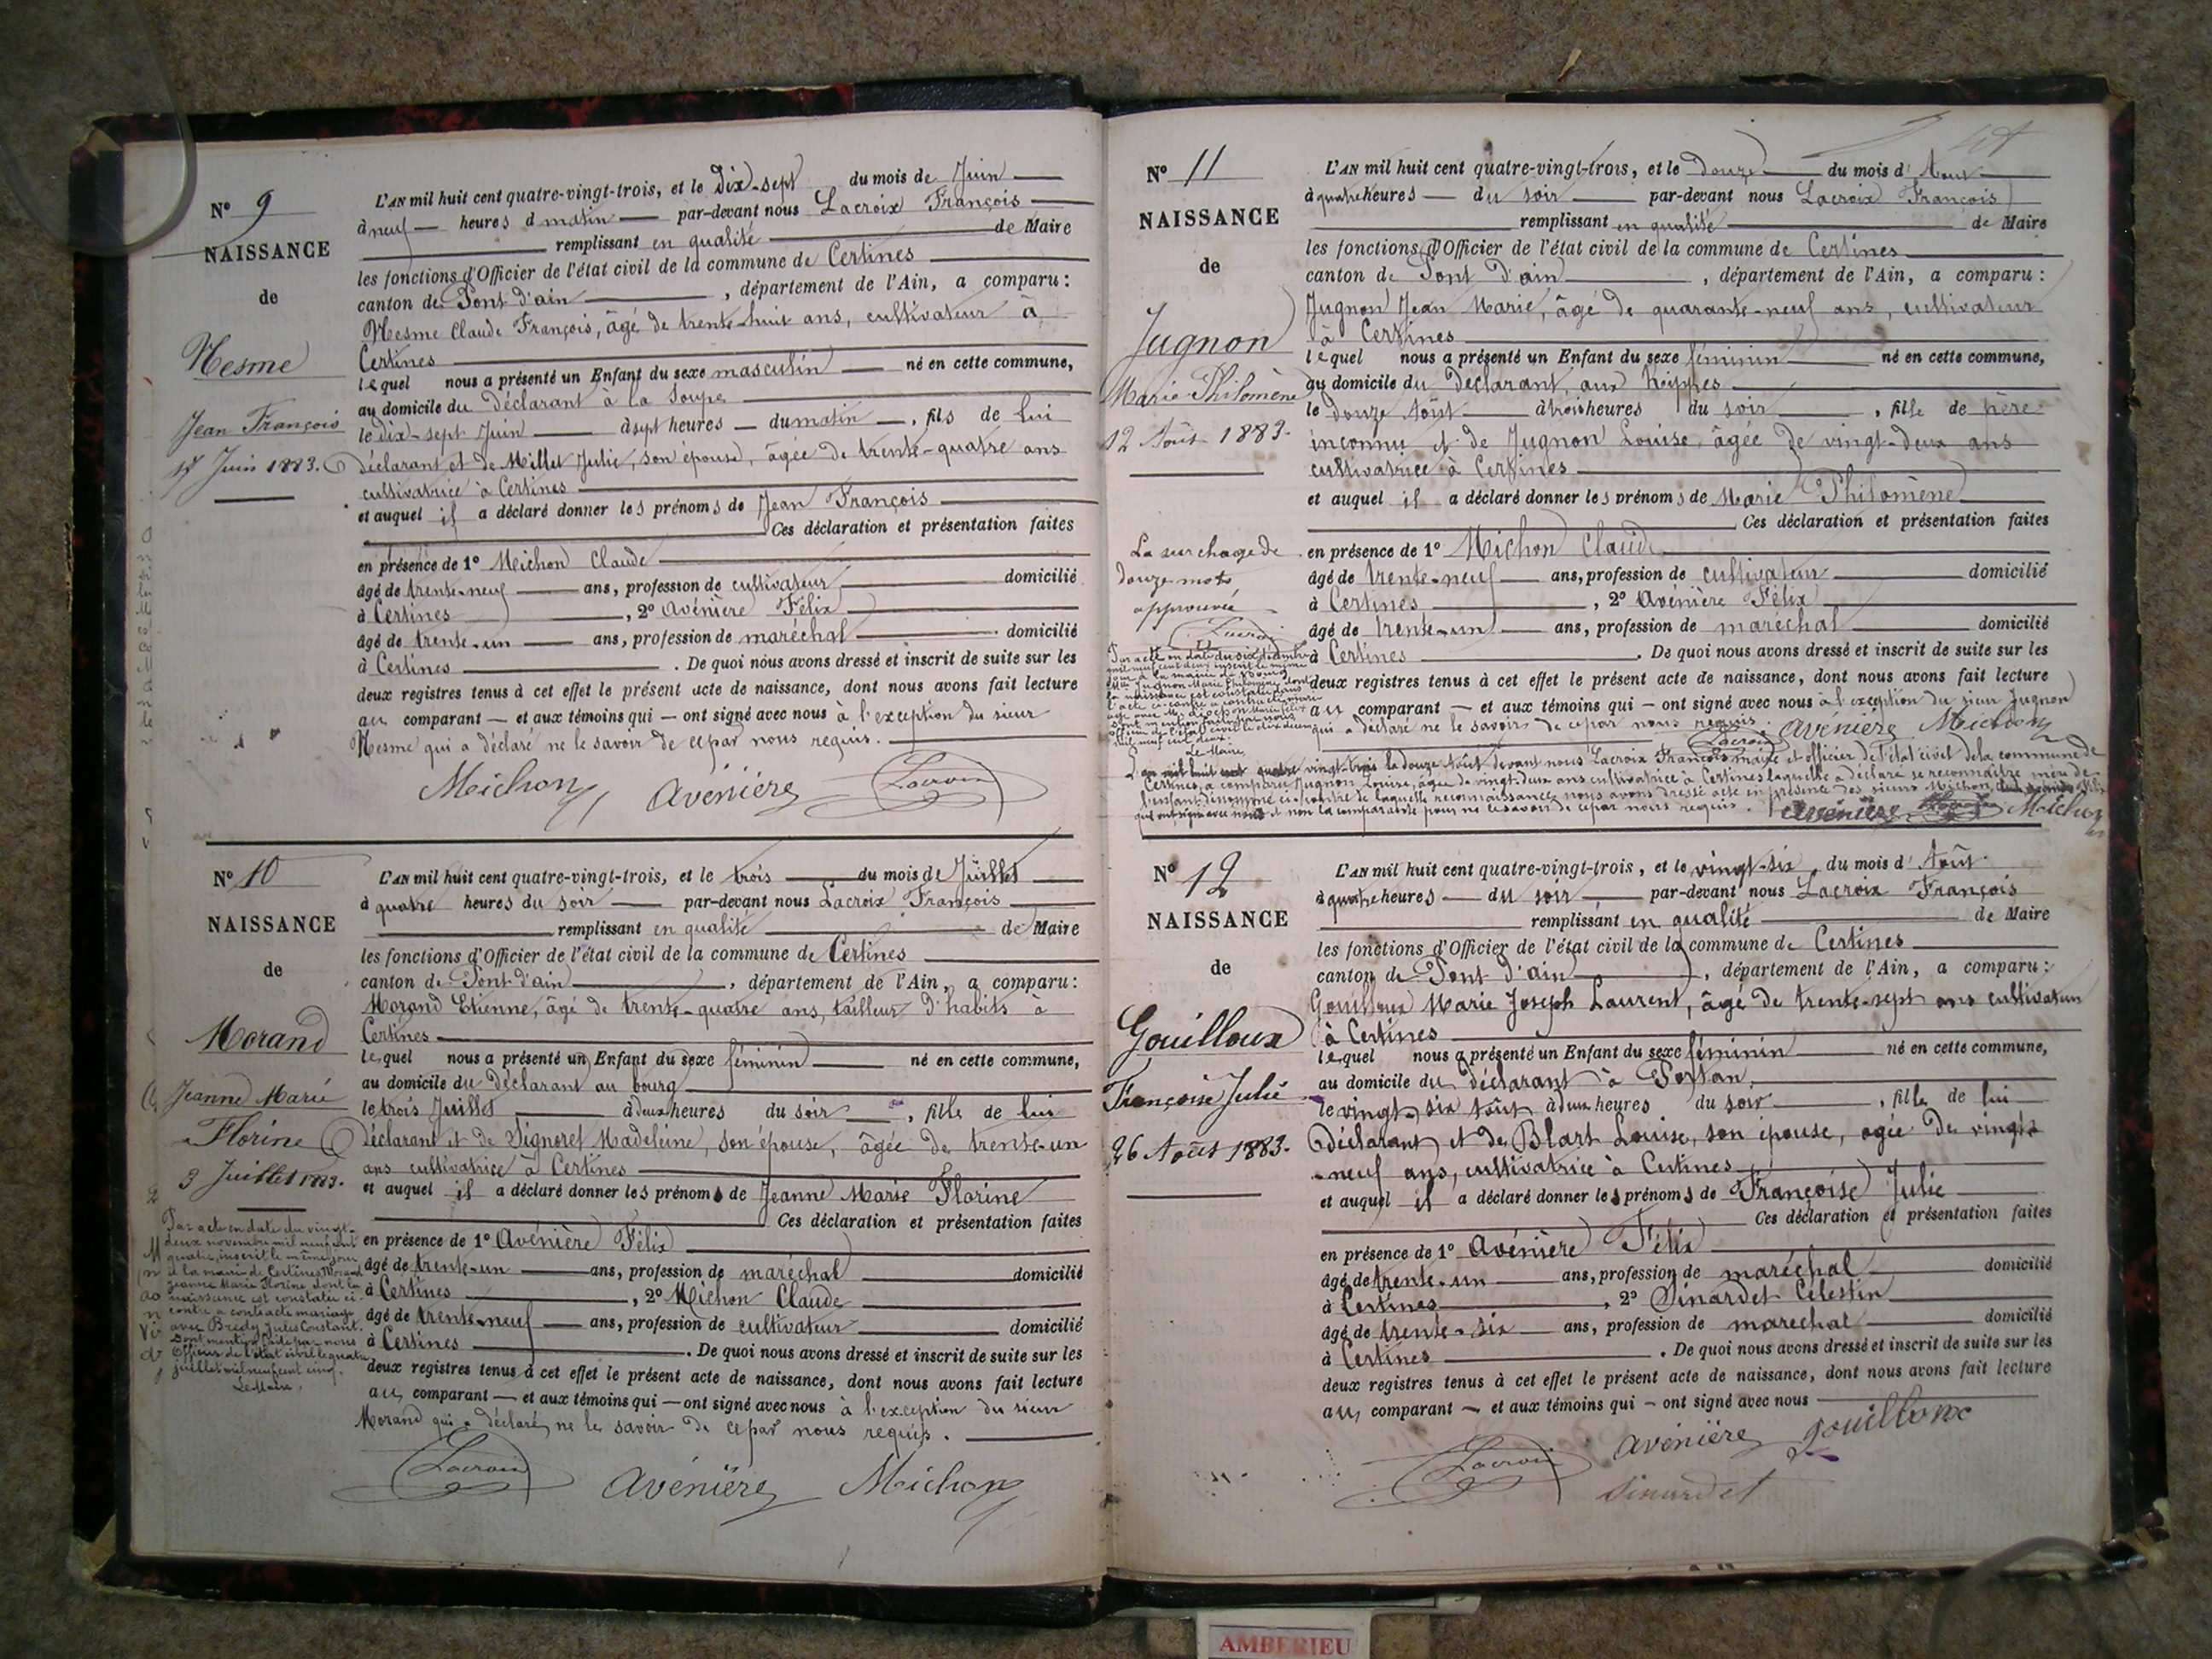 N° 9
NAISSANCE
de
Mesme
Jean François
17 Juin 1883.
L'AN mil huit cent quatre-vingt-trois, et le Dix-sept du mois de Juin
à neuf heures d matin par-devant nous Lacroix François
remplissant en qualité de Maire
les fonctions d'Officier de l'état civil de la commune de Certines
canton de Pont d'ain, département de l'Ain, a comparu :
Mesme Claude François, âgé de trente-huit ans, cultivateur à
Certines
lequel nous a présenté un Enfant du sexe masculin né en cette commune,
au domicile du déclarant à la Soupe
le dix-sept Juin à sept heures du matin, fils de lui
déclarant et de Millet Julie, son épouse, âgée de trente-quatre ans
cultivatrice à Certines
et auquel il a déclaré donner les prénoms de Jean François
Ces déclaration et présentation faites
en présence de 1° Michon Claude
âgé de trente-neuf ans, profession de cultivateur domicilié
à Certines, 2° Avénière Félix
âgé de trente-un ans, profession de maréchal domicilié
à Certines. De quoi nous avons dressé et inscrit de suite sur les
deux registres tenus à cet effet le présent acte de naissance, dont nous avons fait lecture
au comparant et aux témoins qui ont signé avec nous à l'exception du sieur
Mesme qui a déclaré ne le savoir de ce par nous requis.
Michon Avénière Lacroix
N° 10
NAISSANCE
de
Morand
Jeanne Marie
Florine
3 Juillet 1883.
Par acte en date du vingt-
deux novembre mil neuf cent
quatre, inscrit le même jour
à la mairie de Certines Morand
Jeanne Marie Florine dont la
naissance est constatée ci-
contre a contracté mariage
avec Brédy Jules Constant.
Dont mention faite par nous
Officier de l'état civil le quatre
juillet mil neuf cent cinq.
Le Maire,
L'AN mil huit cent quatre-vingt-trois, et le trois du mois de Juillet
à quatre heures du soir par-devant nous Lacroix François
remplissant en qualité de Maire
les fonctions d'Officier de l'état civil de la commune de Certines
canton de Pont d'ain, département de l'Ain, a comparu :
Morand Etienne, âgé de trente-quatre ans, tailleur d'habits à
Certines
lequel nous a présenté un Enfant du sexe féminin né en cette commune,
au domicile du déclarant au bourg
le trois Juillet à deux heures du soir, fille de lui
déclarant et de Signoret Madeleine, son épouse, âgée de trente-un
ans cultivatrice à Certines
et auquel il a déclaré donner les prénoms de Jeanne Marie Florine
Ces déclaration et présentation faites
en présence de 1° Avénière Félix
âgé de trente-un ans, profession de maréchal domicilié
à Certines, 2° Michon Claude
âgé de trente-neuf ans, profession de cultivateur domicilié
à Certines. De quoi nous avons dressé et inscrit de suite sur les
deux registres tenus à cet effet le présent acte de naissance, dont nous avons fait lecture
au comparant et aux témoins qui ont signé avec nous à l'exception du sieur
Morand qui a déclaré ne le savoir de ce par nous requis.
Lacroix Avénière Michon
N° 11
NAISSANCE
de
Jugnon
Marie Philomène
12 Août 1883.
La surchage de
douze mots
approuvée
Lacroix
Par acte en date du six décembre
mil neuf cent deux inscrit le même
jour à la mairie de Bourg
Jugnon Marie Philomène dont
la naissance est constatée dans
l'acte ci-contre a contracté mari-
Le Maire
L'AN mil huit cent quatre-vingt-trois, et le douze du mois d'Aout
à quatre heures du soir par-devant nous Lacroix François
remplissant en qualité de Maire
les fonctions d'Officier de l'état civil de la commune de Certines
canton de Pont d'ain, département de l'Ain, a comparu :
Jugnon Jean Marie, âgé de quarante-neuf ans, cultivateur
à Certines
lequel nous a présenté un Enfant du sexe féminin né en cette commune,
au domicile du déclarant, aux
le douze Août à trois heures du soir, fille de père
inconnu et de Jugnon Louise, âgée de vingt-deux ans
cultivatrice à Certines
et auquel il a déclaré donner les prénoms de Marie Philomène
Ces déclaration et présentation faites
en présence de 1° Michon Claude
âgé de trente-neuf ans, profession de cultivateur domicilié
à Certines, 2° Avénière Félix
âgé de trente-un ans, profession de maréchal domicilié
à Certines. De quoi nous avons dressé et inscrit de suite sur les
deux registres tenus à cet effet le présent acte de naissance, dont nous avons fait lecture
au comparant et aux témoins qui ont signé avec nous à l'exception du sieur Jugnon
qui a déclaré ne le savoir de ce par nous requis.
Lacroix Avénière Michon
L'an mil huit cent quatre vingt-trois le douze Août devant nous Lacroix François maire et officier de l'état civil de la commune de
Certines, a comparu Jugnon Louise, âgée de vingt-deux ans cultivatrice à Certines laquelle a déclaré se reconnaître mère de
l'enfant dénommé ci-contre de laquelle reconnaissance nous avons dressé acte en présence des sieurs Michon,
qui ont signé avec nous et non la comparante pour ne le savoir de ce par nous requis.
Avénière Lacroix Michon
N° 12
NAISSANCE
de
Gouilloux
Françoise Julie
26 Août 1883.
L'AN mil huit cent quatre-vingt-trois, et le vingt-six du mois d'Août
à quatre heures du soir par-devant nous Lacroix François
remplissant en qualité de Maire
les fonctions d'Officier de l'état civil de la commune de Certines
canton de Pont d'ain, département de l'Ain, a comparu :
Gouilloux Marie Joseph Laurent, âgé de trente-sept ans cultivateur
à Certines
lequel nous a présenté un Enfant du sexe féminin né en cette commune,
au domicile du déclarant à
le vingt-six Août à deux heures du soir, fille de lui
déclarant et de Blart Louise, son épouse, agée de vingt
-neuf ans, cultivatrice à Certines
et auquel il a déclaré donner les prénoms de Françoise Julie
Ces déclaration et présentation faites
en présence de 1° Avénière Félix
âgé de trente-un ans, profession de maréchal domicilié
à Certines, 2° Sinardet Célestin
âgé de trente-six ans, profession de marechal domicilié
à Certines. De quoi nous avons dressé et inscrit de suite sur les
deux registres tenus à cet effet le présent acte de naissance, dont nous avons fait lecture
au comparant et aux témoins qui ont signé avec nous
Lacroix Avénière Gouilloux
Sinardet
AMBERIEU